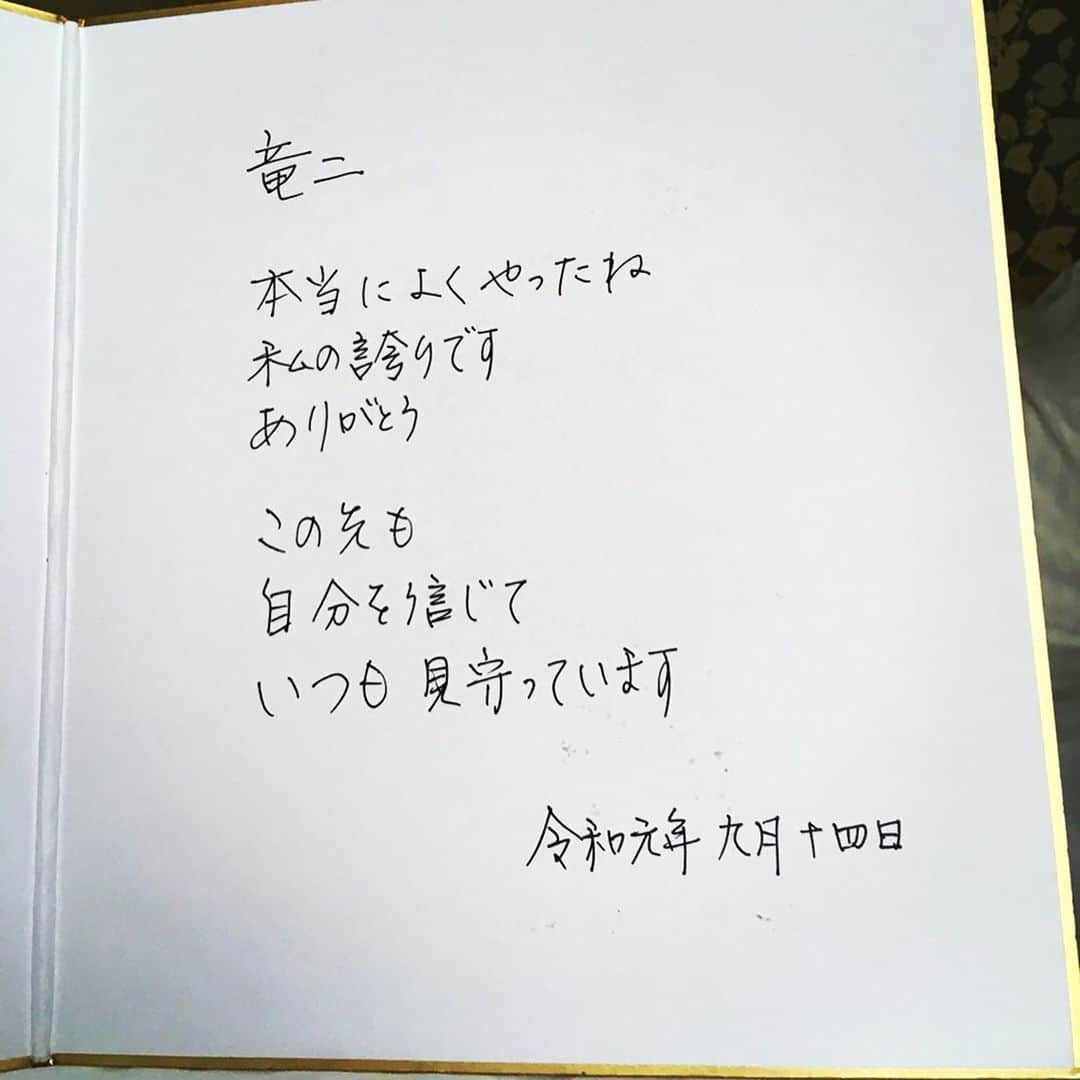 竜二
本当によくやったね
私の誇りです
ありがとう
この先も
自分を信じて
いつも見守っています
令和元年 九月十四日